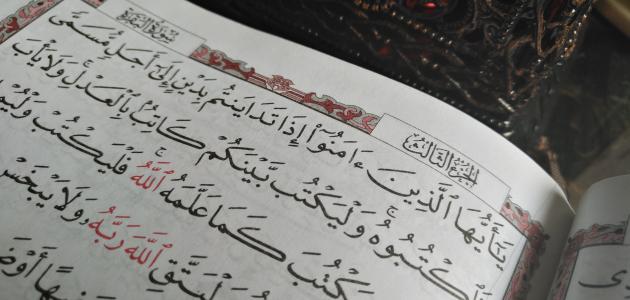 سورة البقرة
الجزء الثالث
يَٰٓأَيُّهَا ٱلَّذِينَ ءَامَنُوٓا۟ إِذَا تَدَايَنتُم بِدَيْنٍ إِلَىٰٓ أَجَلٍ مُّسَمًّى
فَٱكْتُبُوهُ ۚ وَلْيَكْتُب بَّيْنَكُمْ كَاتِبٌۢ بِٱلْعَدْلِ ۚ وَلَا يَأْبَ
يَكْتُبَ كَمَا عَلَّمَهُ ٱللَّهُ ۚ فَلْيَكْتُبْ
وَلْيَتَّقِ ٱللَّهَ رَبَّهُۥ وَلَا يَبْخَسْ